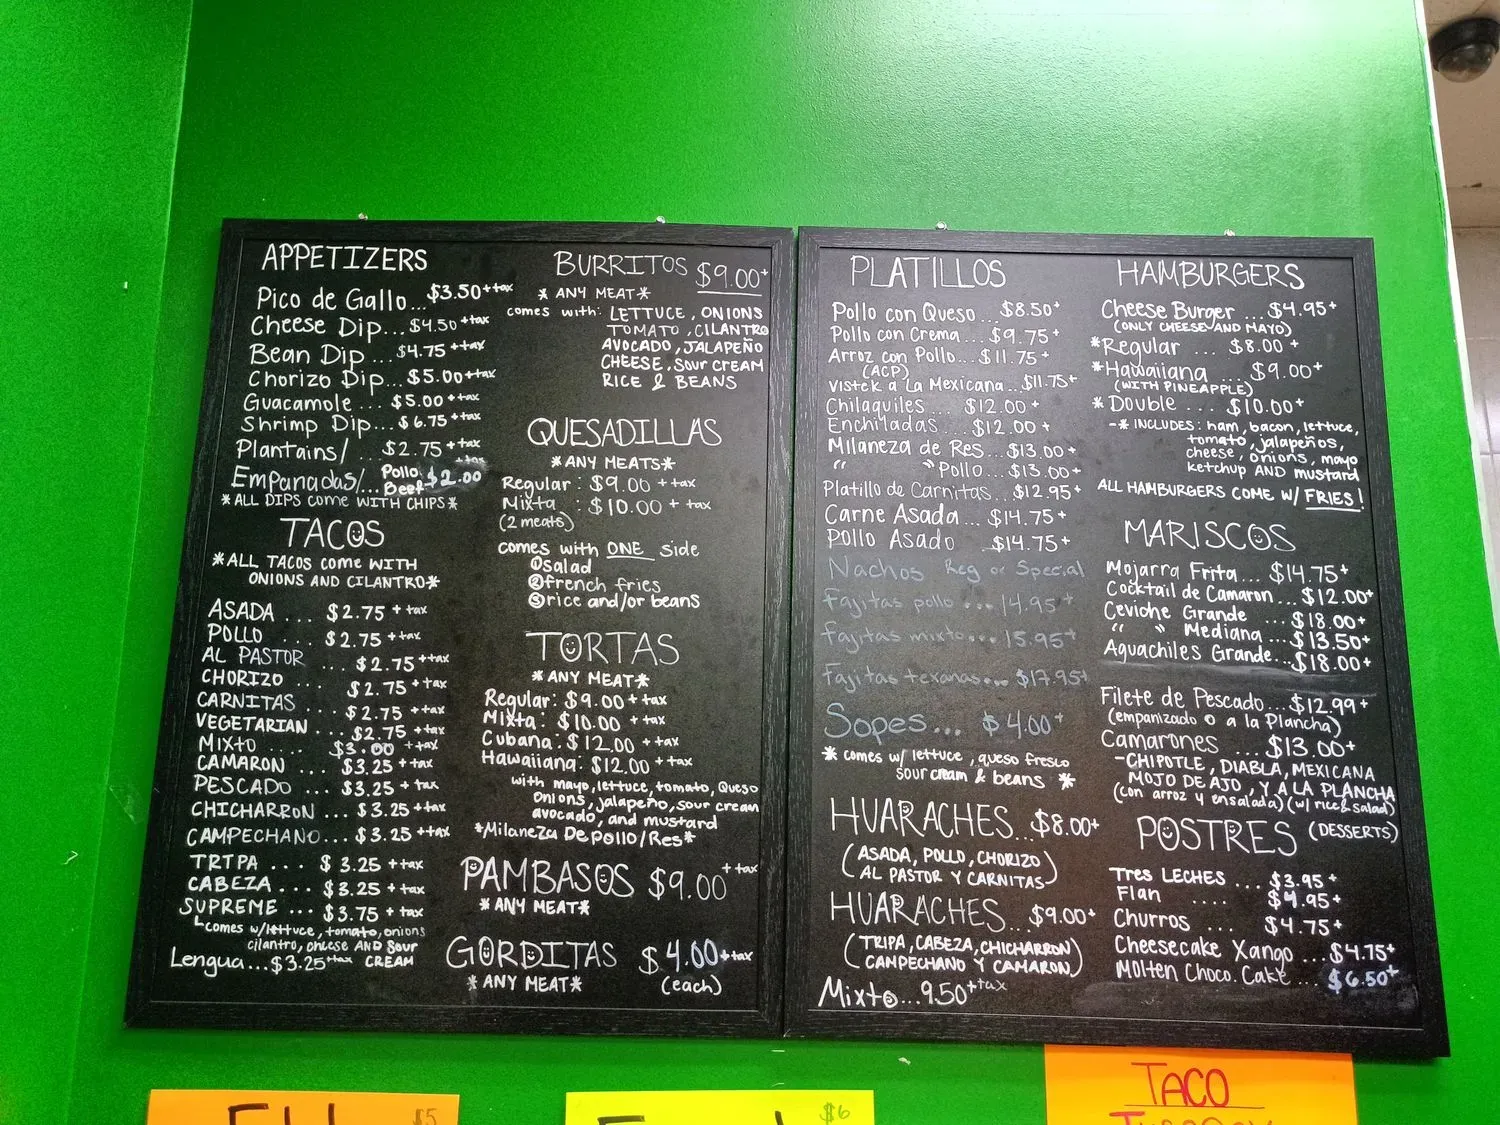 APPETIZERS
Pico de Gallo... $3.50++tax
Cheese Dip... $4.50+tax
Bean Dip... $4.75++tax
Chorizo Dip... $5.00++tax
Guacamole... $5.00++tax
Shrimp Dip... $6.75++tax
Plantains/ $2.75++tax
Empanadas/... Pollo Beef $2.00+tax
*ALL DIPS COME WITH CHIPS*
TACOS
*ALL TACOS COME WITH
ONIONS AND CILANTRO*
ASADA ... $2.75 ++tax
POLLO ... $2.75 ++tax
AL PASTOR ... $2.75 ++tax
CHORIZO ... $2.75 ++tax
CARNITAS ... $2.75 ++tax
VEGETARIAN ... $2.75 ++tax
MIXTO .... $3.00 ++tax
CAMARON ... $3.25 ++tax
PESCADO ... $3.25 ++tax
CHICHARRON... $3.25 ++tax
CAMPECHANO... $3.25 ++tax
TRIPA ... $3.25 ++tax
CABEZA ... $3.25 ++tax
SUPREME ... $3.75 + tax
comes w/lettuce, tomato, onions
cilantro, cheese AND sour
CREAM
Lengua...$3.25++tax
BURRITOS $9.00+
* ANY MEAT *
comes with: LETTUCE, ONIONS
TOMATO, CILANTRO
AVOCADO, JALAPEÑO
CHEESE, SOUR CREAM
RICE & BEANS
QUESADILLAS
*ANY MEATS*
Regular: $9.00 ++tax
Mixta : $10.00 ++ tax
(2 meats)
comes with ONE side
① salad
② french fries
③ rice and/or beans
TORTAS
*ANY MEAT*
Regular: $9.00 ++tax
Mixta: $10.00 ++tax
Cubana: $12.00 ++tax
Hawaiiana: $12.00 ++tax
with mayo, lettuce, tomato, Queso
onions, jalapeño, sour cream
avocado, and mustard
*Milaneza De pollo/Res*
PAMBASOS $9.00++tax
*ANY MEAT*
GORDITAS $4.00++tax
*ANY MEAT* (each)
PLATILLOS
Pollo con Queso... $8.50+
Pollo con Crema... $9.75+
Arroz con Pollo... $11.75+
(ACP)
Vistek a La Mexicana.. $11.75+
Chilaquiles... $12.00+
Enchiladas... $12.00+
Milaneza de Res... $13.00+
" " Pollo... $13.00+
Platillo de Carnitas.. $12.95+
Carne Asada... $14.75+
Pollo Asado ... $14.75+
Nachos Reg or Special
Fajitas pollo ... 14.95+
Fajitas mixto... 15.95+
Fajitas texanas... $17.95+
Sopes... $4.00+
* comes w/ lettuce, queso fresco
sour cream & beans *
HUARACHES.. $8.00+
(ASADA, POLLO, CHORIZO
AL PASTOR Y CARNITAS)
HUARACHES... $9.00+
(TRIPA, CABEZA, CHICHARRON
CAMPECHANO Y CAMARON)
Mixto...9.50++tax
HAMBURGERS
Cheese Burger ... $4.95+
(ONLY CHEESE AND MAYO)
*Regular ... $8.00 +
*Hawaiiana ... $9.00+
(WITH PINEAPPLE)
* Double ... $10.00+
-* INCLUDES: ham, bacon, lettuce,
tomato, jalapeños,
cheese, onions, mayo
ketchup AND mustard
ALL HAMBURGERS COME W/ FRIES!
MARISCOS
Mojarra Frita... $14.75+
Cocktail de Camaron ... $12.00+
Ceviche Grande $18.00+
" " Mediana ... $13.50+
Aguachiles Grande... $18.00+
Filete de Pescado ... $12.99+
(empanizado o a la Plancha)
Camarones ... $13.00+
-CHIPOTLE, DIABLA, MEXICANA
MOJO DE AJO, Y A LA PLANCHA
(con arroz y ensalada)(w/ rice & salad)
POSTRES (DESSERTS)
Tres LECHES ... $3.95+
Flan .... $4.95+
Churros ... $4.75+
Cheesecake Xango ...$4.75+
Molten Choco. Cake ... $6.50+
$5
$6
TACO